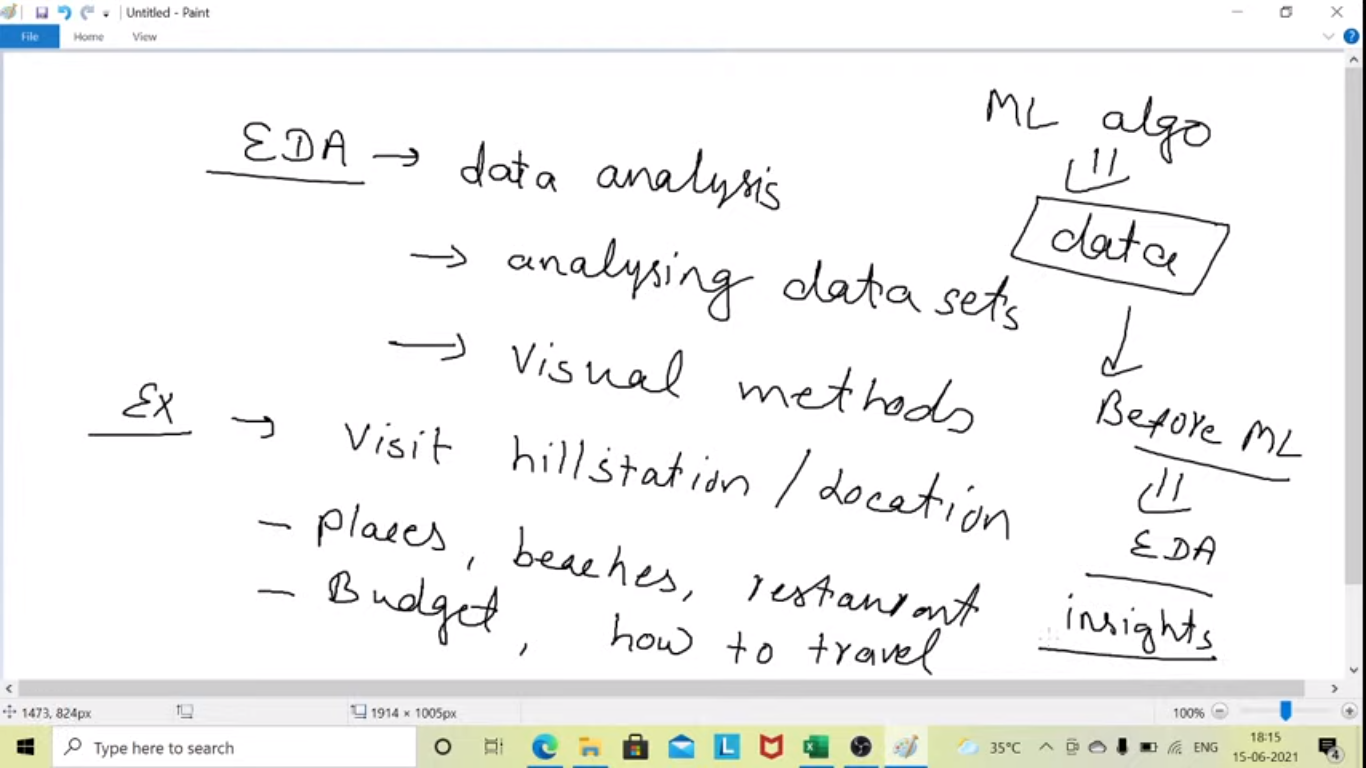 Untitled - Paint
File Home View
EDA → data analysis
→ analysing data sets
→ Visual methods
Ex → Visit hillstation / Location
- Places, beaches, restaurant
- Budget, how to travel
ML algo
data
Before ML
EDA
insights
1473, 824px
1914 × 1005px
100%
Type here to search
L
35°C
ENG
18:15
15-06-2021
4